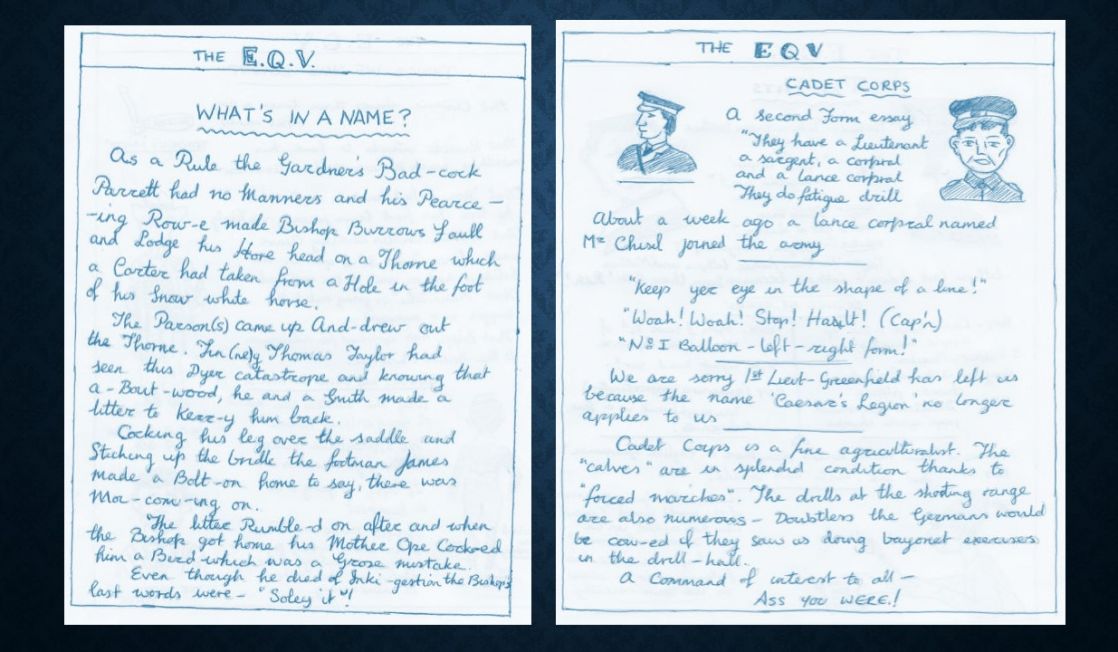 THE E.Q.V.
WHAT'S IN A NAME?
As a Rule the Gardner's Bad-cock
Parrett had no Manners and his Pearce -
-ing Row-e made Bishop Burrows Faull
and Lodge his Hore head on a Thorne which
a Carter had taken from a Hole in the foot
of his Snow white horse.
The Parson(s) came up And-drew out
the Thorne. Fin(ne)y Thomas Taylor had
seen this Dyer catastrope and knowing that
a-Bout-wood, he and a Smith made a
litter to Kerr-y him back.
Cocking his leg over the saddle and
Stiching up the bridle the footman James
made a Bolt-on home to say, there was
Mor-com-ing on.
The litter Rumble-d on after and when
the Bishop got home his Mother Ope Cock-ed
him a Burd which was a Grose mistake.
Even though he died of Inki-gestion the Bishop's
last words were - "Soley it"!
THE EQV
CADET CORPS
A second Form essay
"They have a Lieutenant
a sargent, a corpral
and a lance corpral
They do fatigue drill
About a week ago a lance corpral named
Mr Chisil joined the army
"Keep yer eye in the shape of a line!"
"Woah! Woah! Stop! Haalt! (Cap'n)
"No I Balloon - left - right form!"
We are sorry 1st Lieut-Greenfield has left us
because the name 'Caesar's Legion' no longer
applies to us
Cadet Corps is a fine agriculturalist. The
"calves" are in splendid condition thanks to
"forced marches". The drills at the shooting range
are also numerous - Doubtless the Germans would
be cow-ed if they saw us doing bayonet exercises
in the drill-hall.
A Command of interest to all -
ASS YOU WERE!